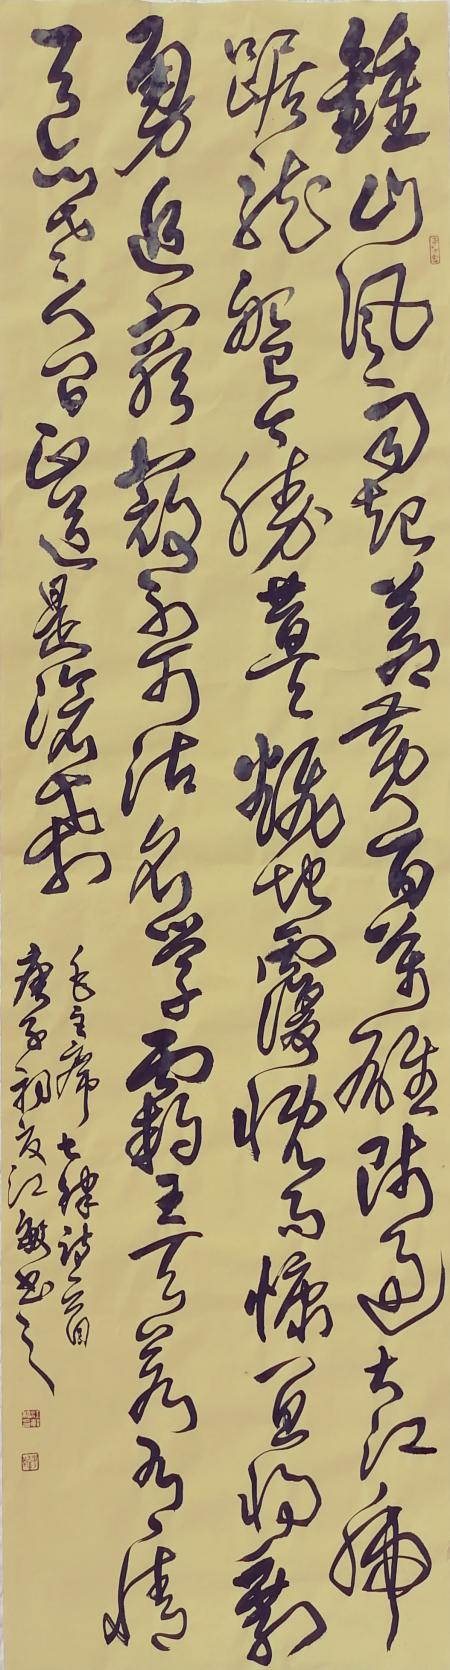 鍾山风雨起蒼黄百萬雄师过大江虎
踞龙盤今勝昔天翻地覆慨而慷宜将剩
勇追窮寇不可沽名学霸王天若有情
天亦老人间正道是滄桑
毛主席七律诗一首
庚子初夏江敏书之